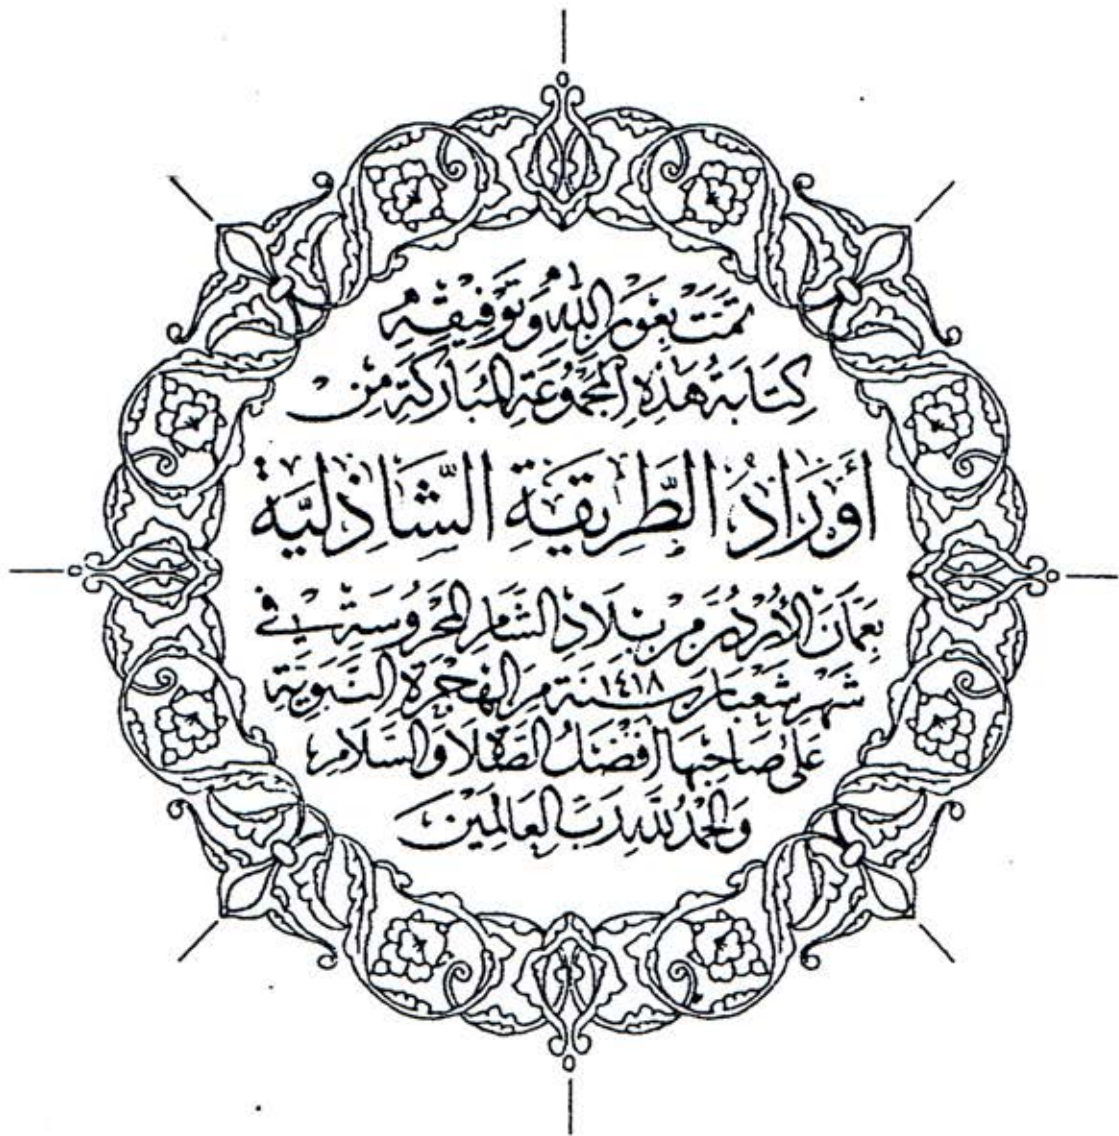 تَمَّتْ بِعَوْنِ اللّٰهِ وَتَوْفِيقِهِ
كِتَابَةُ هَذِهِ الْمَجْمُوعَةِ الْمُبَارَكَةِ مِنْ
أَوْرَادُ الطَّرِيقَةِ الشَّاذِلِيَّة
بِعَمَّانَ الْأُرْدُن مِنْ بِلَادِ الشَّامِ الْمَحْرُوسَةِ فِي
شَهْرِ شَعْبَان سَنَة ١٤١٨ مِنَ الْهِجْرَةِ النَّبَوِيَّةِ
عَلَى صَاحِبِهَا أَفْضَلُ الصَّلَاةِ وَالسَّلَامِ
وَالْحَمْدُ لِلّٰهِ رَبِّ الْعَالَمِينَ